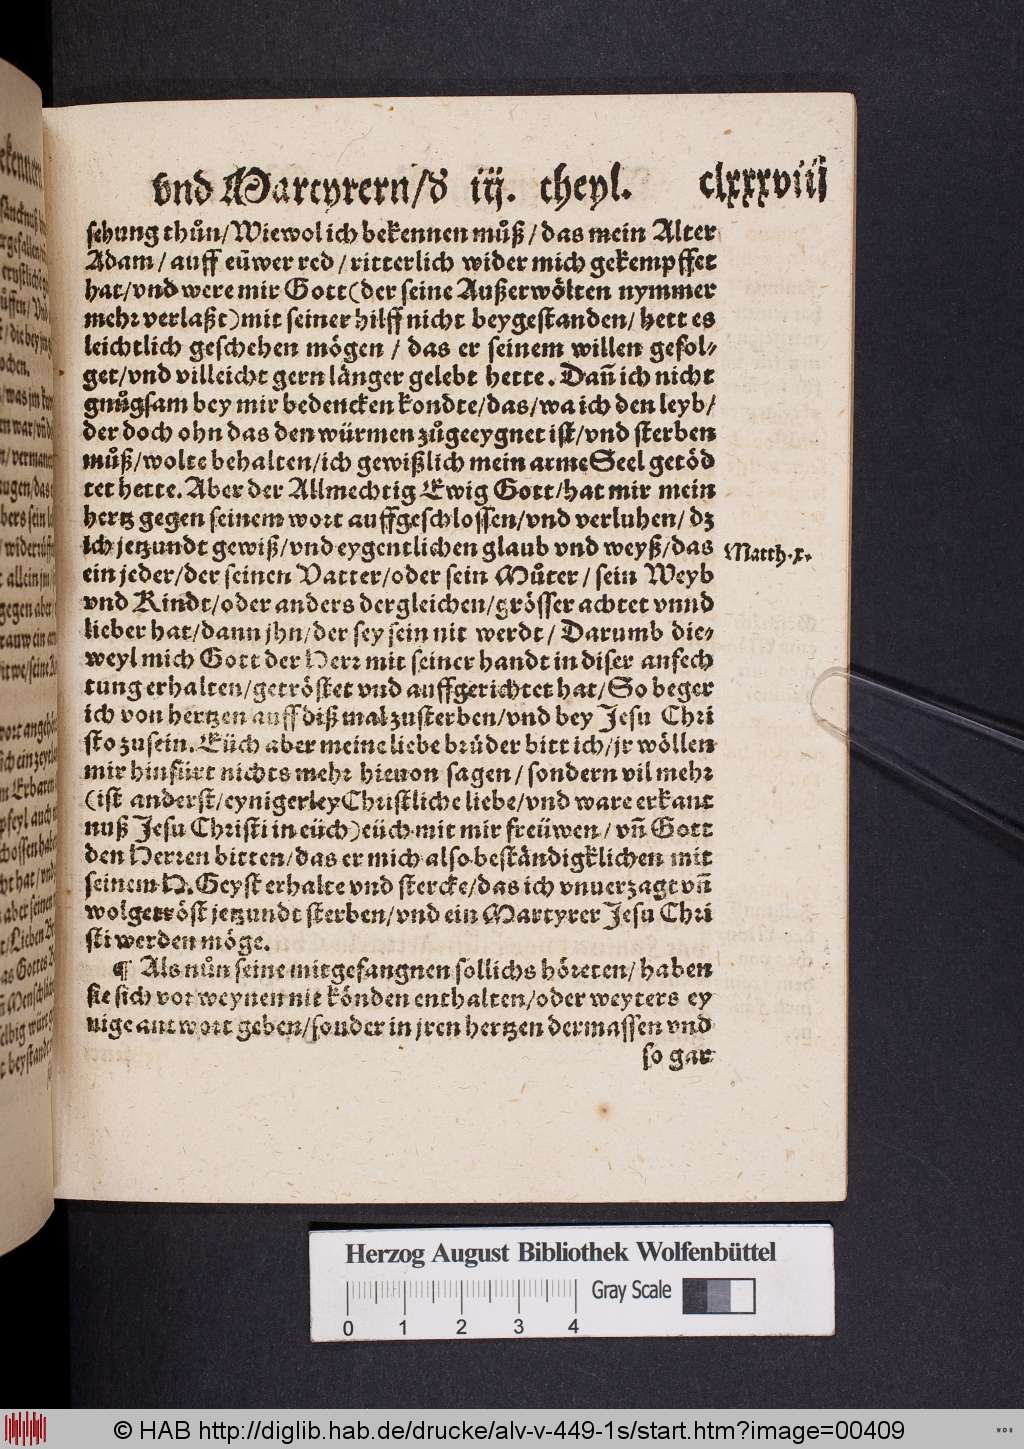 vnd Martyrern/ď iij. theyl. clxxxviij
sehung thůn/Wiewol ich bekennen můß/das mein Alter
Adam/auff eüwer red/ritterlich wider mich gekempffet
hat/vnd were mir Gott(der seine Außerwölten nymmer
mehr verlaßt)mit seiner hilff nicht beygestanden/hett es
leichtlich geschehen mögen/das er seinem willen gefol⸗
get/vnd villeicht gern länger gelebt hette. Dañ ich nicht
gnůgsam bey mir bedencken kondte/das/wa ich den leyb/
der doch ohn das den würmen zůgeeygnet ist/vnd sterben
můß/wolte behalten/ich gewißlich mein arme Seel getöd
tet hette. Aber der Allmechtig Ewig Gott/hat mir mein
hertz gegen seinem wort auffgeschlossen/vnd verluhen/dz
ich jetzundt gewiß/vnd eygentlichen glaub vnd weyß/das
Matth.x.
ein jeder/der seinen Vatter/oder sein Můter/sein Weyb
vnd Kindt/oder anders dergleichen/grösser achtet vnnd
lieber hat/dann jhn/der sey sein nit werdt/Darumb die⸗
weyl mich Gott der Herr mit seiner handt in diser anfech
tung erhalten/getröstet vnd auffgerichtet hat/So beger
ich von hertzen auff diß mal zu sterben/vnd bey Jesu Chri
sto zu sein. Eüch aber meine liebe brüder bitt ich/jr wöllen
mir hinfürt nichts mehr hieuon sagen/sondern vil mehr
(ist anderst/eynigerley Christliche liebe/vnd ware erkant
nuß Jesu Christi in eüch)eüch mit mir freüwen/vñ Gott
den Herren bitten/das er mich also beständigklichen mit
seinem H. Geyst erhalte vnd stercke/das ich vnuerzagt vñ
wolgetröst jetzundt sterben/vnd ein Martyrer Jesu Chri
sti werden möge.
¶ Als nůn seine mitgefangnen sollichs höreten/haben
sie sich vor weynen nit könden enthalten/oder weyters ey
nige antwort geben/sonder in jren hertzen dermassen vnd
so gar
Herzog August Bibliothek Wolfenbüttel
Gray Scale
0 1 2 3 4
© HAB http://diglib.hab.de/drucke/alv-v-449-1s/start.htm?image=00409